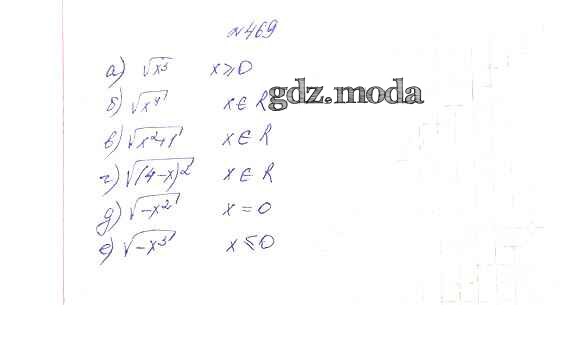 №469
а) √x³ x ≥ 0
б) √x⁴ x ∈ R
в) √x²+1 x ∈ R
г) √(4-x)² x ∈ R
д) √-x² x = 0
е) √-x³ x ≤ 0
gdz.moda